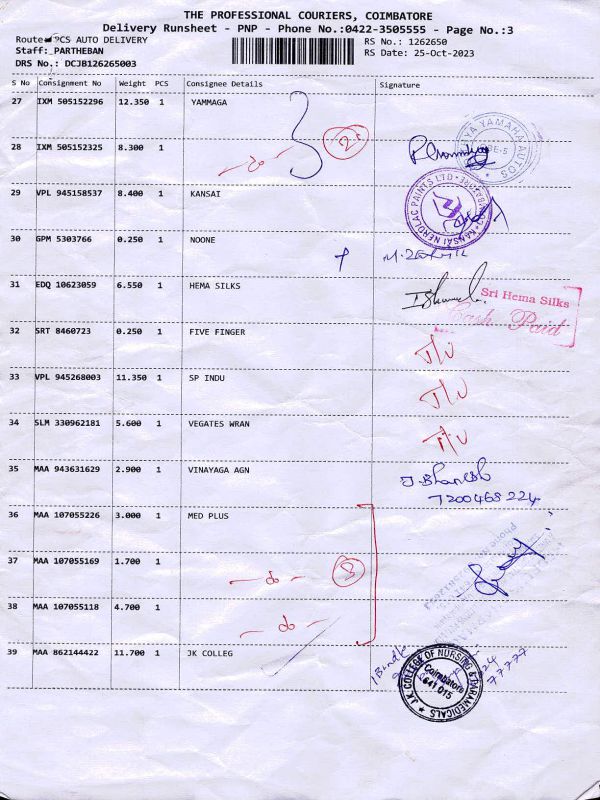 THE PROFESSIONAL COURIERS, COIMBATORE
Delivery Runsheet - PNP - Phone No.:0422-3505555 - Page No.:3
Route PCS AUTO DELIVERY
RS No.: 1262650
Staff: PARTHEBAN
RS Date: 25-Oct-2023
DRS No.: DCJB126265003
S No Consignment No Weight PCS Consignee Details Signature
27 IXM 505152296 12.350 1 YAMMAGA
28 IXM 505152325 8.300 1 -do-
29 VPL 945158537 8.400 1 KANSAI
KANSAI NEROLAC PAINTS LTD
30 GPM 5303766 0.250 1 NOONE
31 EDQ 10623059 6.550 1 HEMA SILKS
Sri Hema Silks
Cash Paid
32 SRT 8460723 0.250 1 FIVE FINGER
33 VPL 945268003 11.350 1 SP INDU
34 SLM 330962181 5.600 1 VEGATES WRAN
35 MAA 943631629 2.900 1 VINAYAGA AGN
7200468224
36 MAA 107055226 3.000 1 MED PLUS
37 MAA 107055169 1.700 1 -do- 3
38 MAA 107055118 4.700 1 -do-
39 MAA 862144422 11.700 1 JK COLLEG
1 Bundle
J.K. COLLEGE OF NURSING & PARAMEDICALS
Coimbatore
641 015